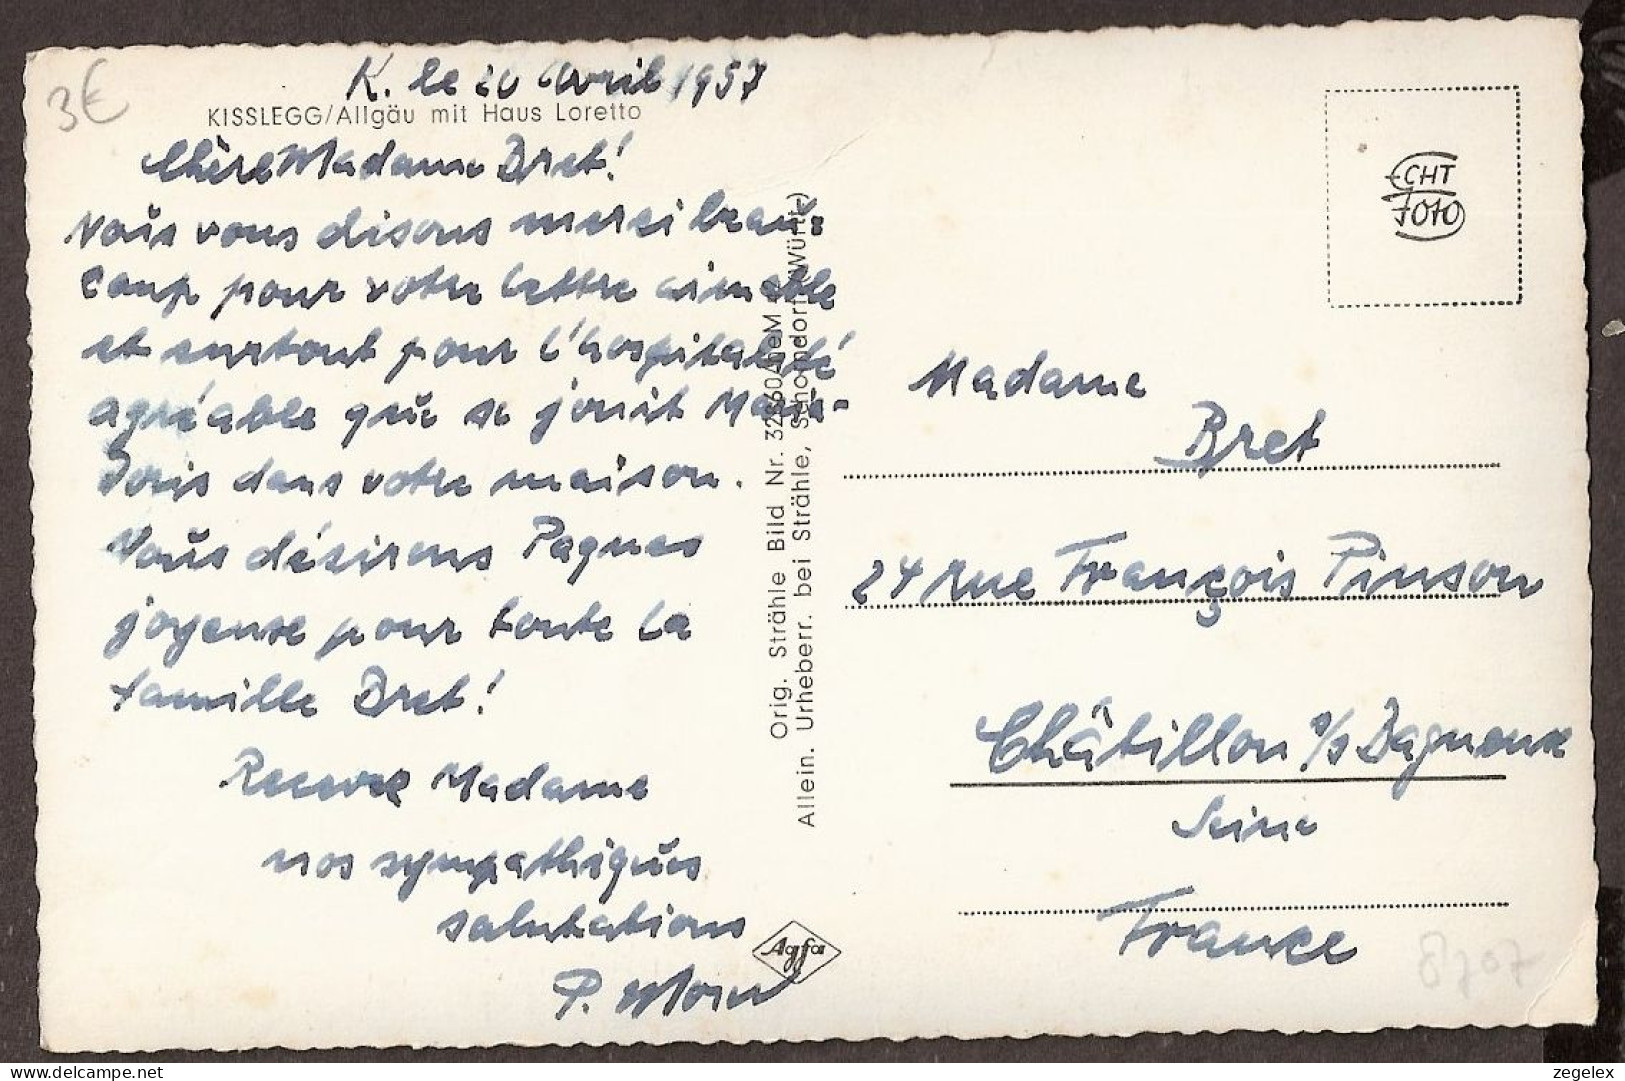 3€
K. le 20 Avril 1957
KISSLEGG/Allgäu mit Haus Loretto
Chère Madame Bret!
Nous vous disons merci beau-
coup pour votre lettre aimable
et surtout pour l'hospitalité
agréable que se jouit Marie-
Doris dans votre maison.
Nous désirons Paques
joyeuse pour toute la
famille Bret!
Recevez Madame
nos sympathiques
salutations
P.
Agfa
Orig. Strähle Bild Nr.
Allein. Urheberr. bei Strähle, Schorndorf (Württ.)
ECHT
FOTO
Madame
Bret
24 rue François Pinson
Châtillon s/s Bagneux
Seine
France
8707
zegelex